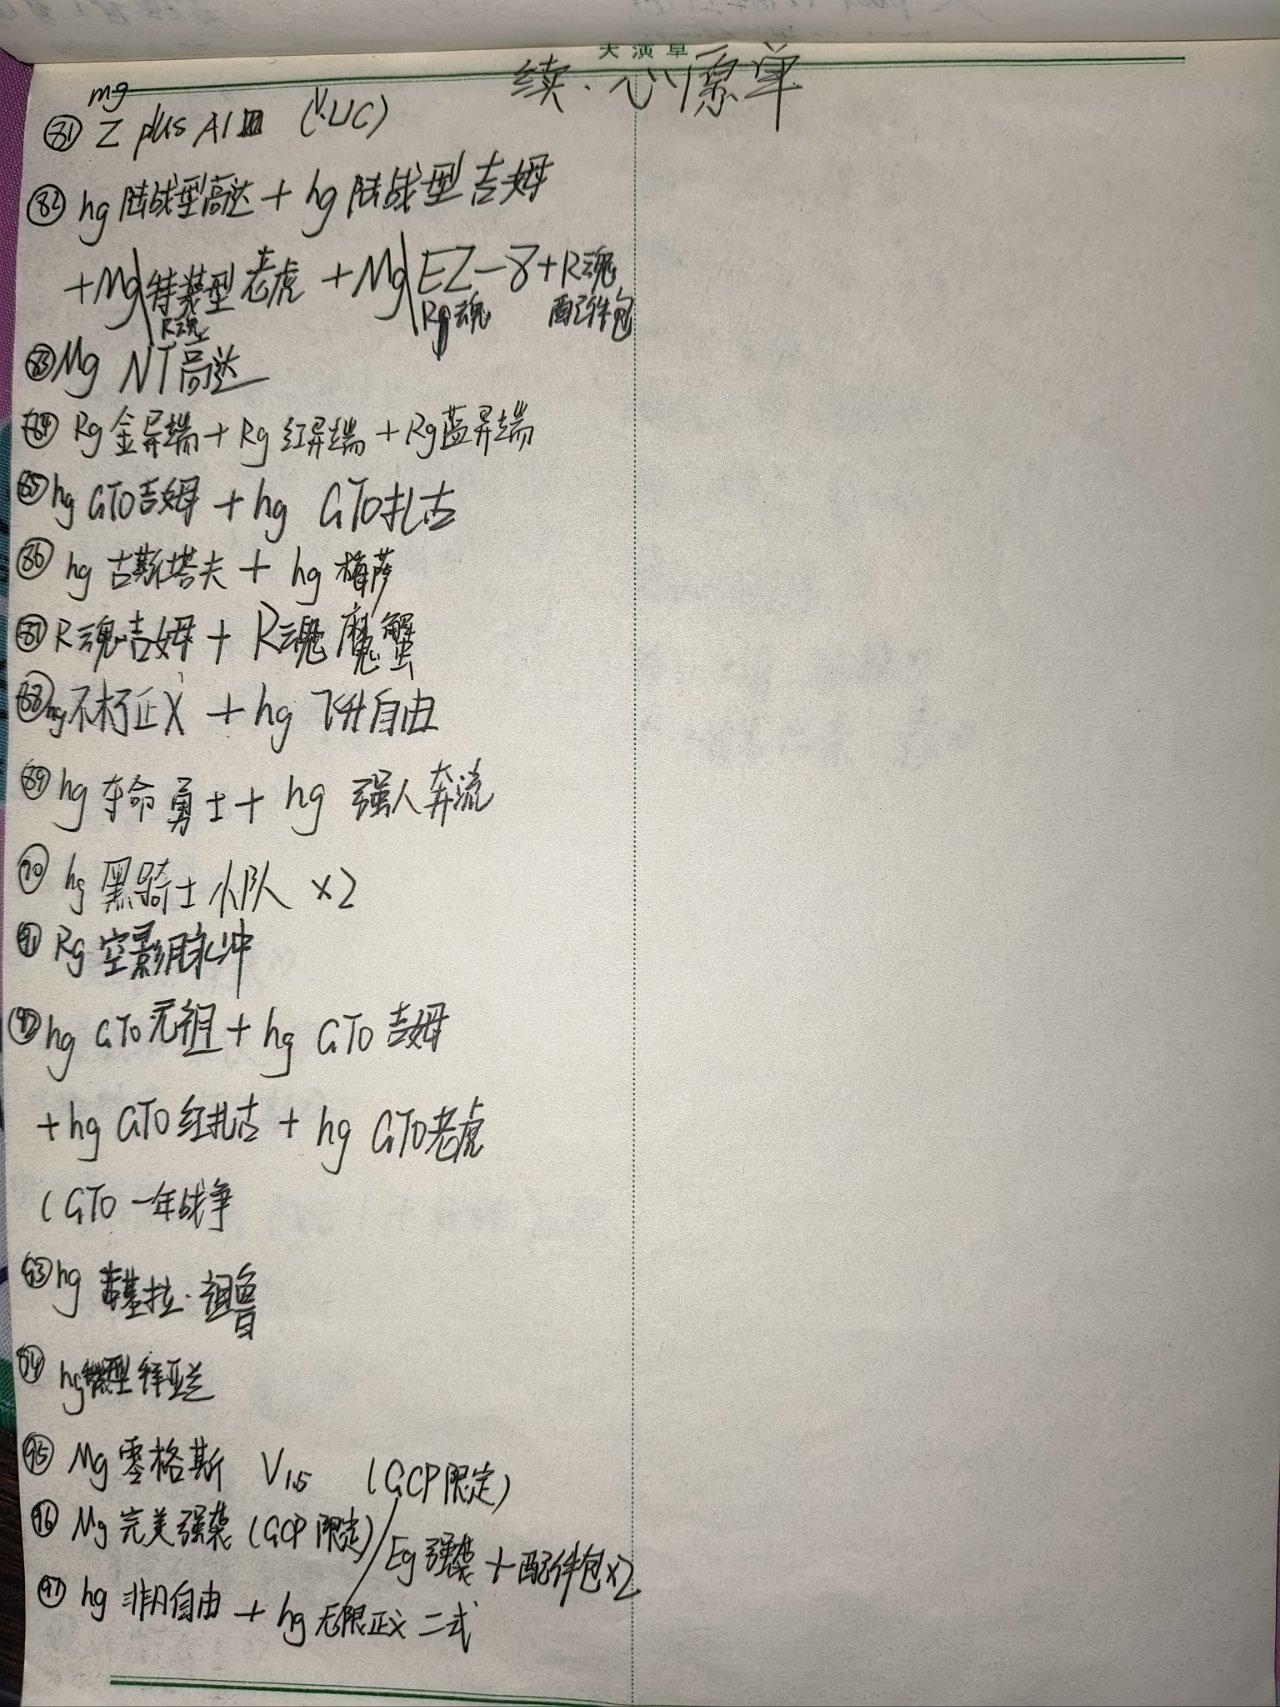 天演草
续·心愿单
mg
81 Z plus A1 (V.UC)
82 hg 陆战型高达 + hg 陆战型吉姆
+Mg 特装型老虎 +Mg EZ-8+R魂
R魂 Rg魂 配件包
83 Mg NT高达
84 Rg 金异端+Rg 红异端+Rg蓝异端
85 hg GTO吉姆 + hg GTO扎古
86 hg 古斯塔夫 + hg 梅萨
87 R魂吉姆 + R魂 魔蟹
88 hg不朽正义 + hg 飞升自由
89 hg 夺命勇士+ hg 强人奔流
90 hg 黑骑士小队 ×2
91 Rg 空影用脉冲
92 hg GTO元祖+ hg GTO 吉姆
+hg GTO红扎古 + hg GTO老虎
(GTO 一年战争
93 hg 吉基拉·祖鲁
94 hg 型拜亚兰
95 Mg 零格斯 V1.5 (GCP限定)
96 Mg 完美强袭 (GCP限定)/Eg强袭 +配件包×2
97 hg 非凡自由 + hg 无限正义 二式